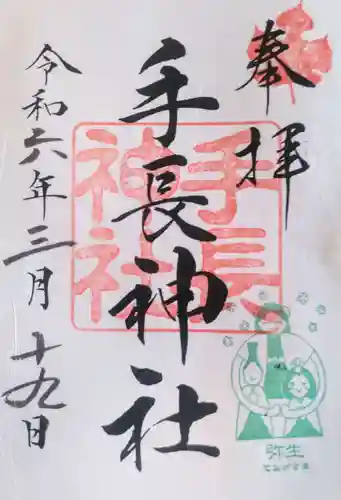 奉拝
手長神社
令和六年三月十九日
手長
神社
弥生
てながさま